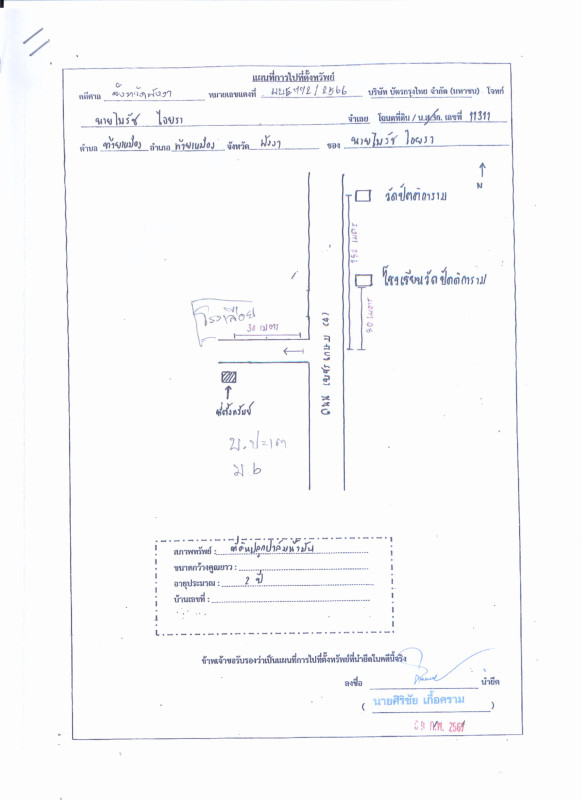 แผนที่การไปที่ตั้งทรัพย์
คดีศาล จังหวัดพังงา หมายเลขแดงที่ ผบE772/2566 บริษัท บัตรกรุงไทย จำกัด (มหาชน) โจทก์
นายไพรัช ไอยรา จำเลย โฉนดที่ดิน / น.ส.3ก. เลขที่ 11311
ตำบล ท้ายเหมือง อำเภอ ท้ายเหมือง จังหวัด พังงา ของ นายไพรัช ไอยรา
N
วัดปัตติการาม
150 เมตร
โรงเรียนวัดปัตติการาม
80 เมตร
โรงเลื่อย
30 เมตร
ถนน
ที่ตั้งทรัพย์
ม 6
สภาพทรัพย์ : ที่ดินปลูกปาล์มน้ำมัน
ขนาดกว้างคูณยาว :
อายุประมาณ : 2 ปี
บ้านเลขที่ :
ข้าพเจ้าขอรับรองว่าเป็นแผนที่การไปที่ตั้งทรัพย์ที่นำยึดในคดีนี้จริง
ลงชื่อ นำยึด
( นายศิริชัย เกื้อคราม )
ก.พ. 2567